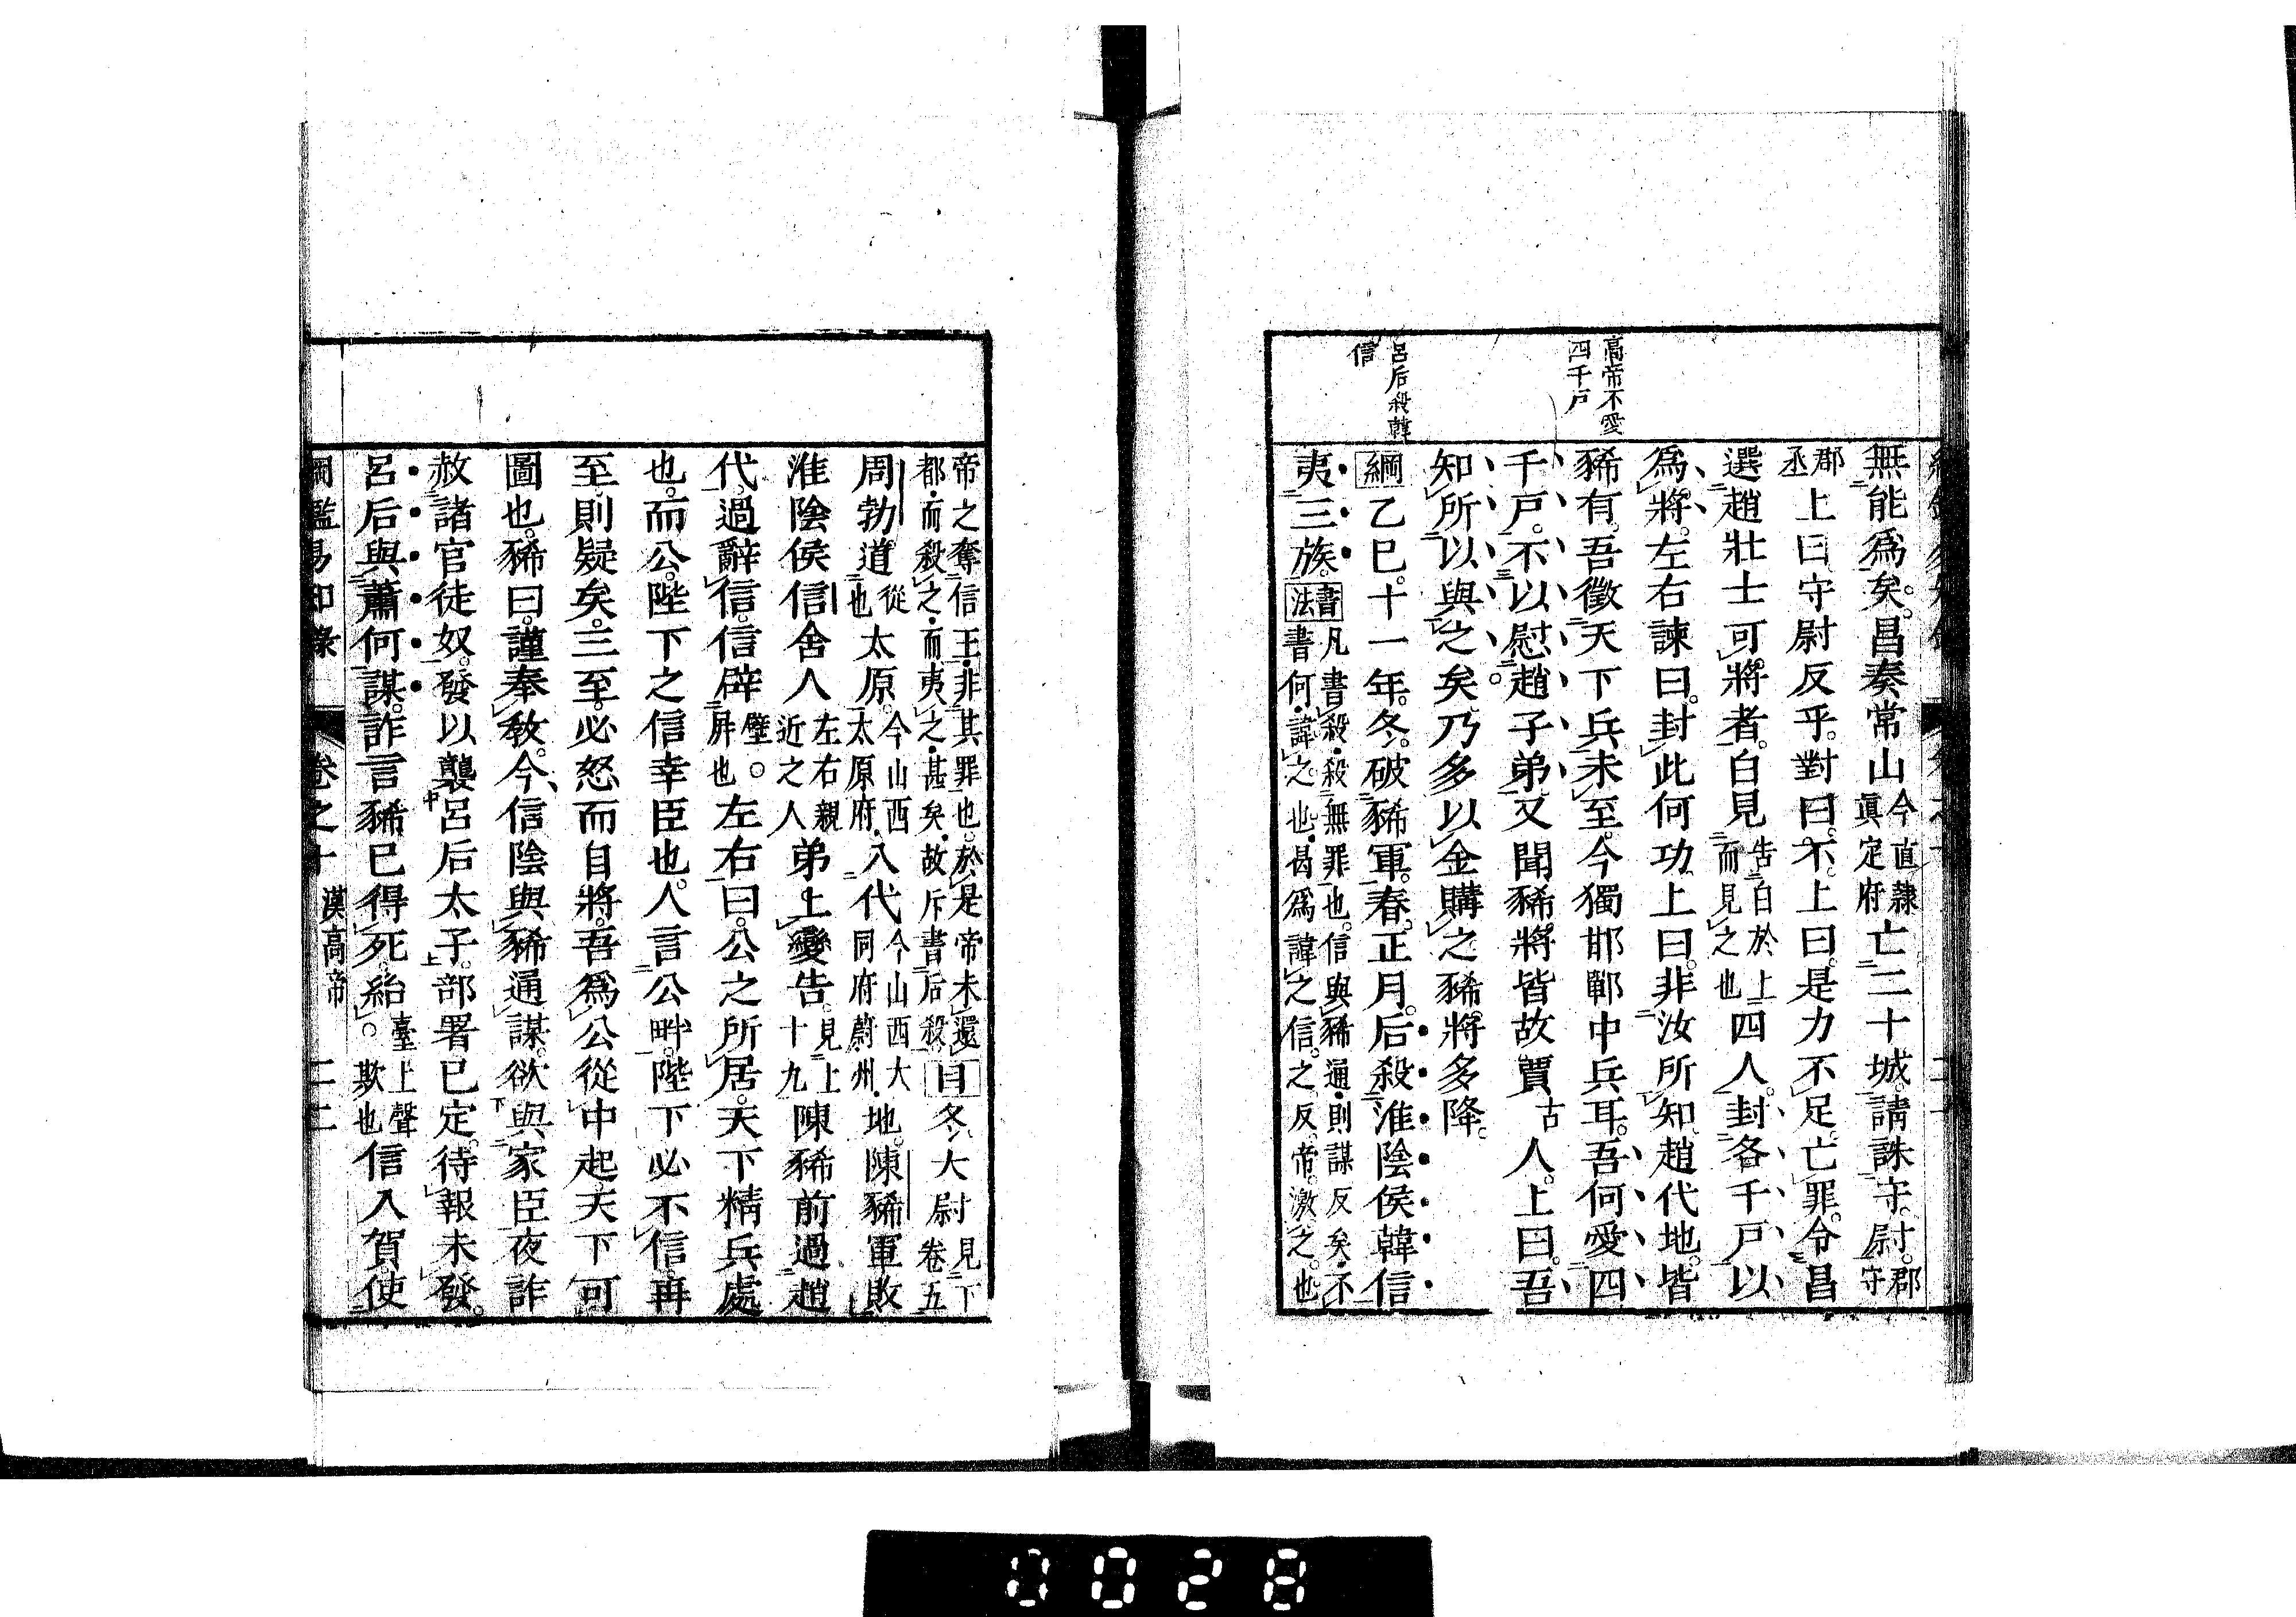 高帝不愛
四千戸
呂后殺韓
信
無能爲矣。昌奏常山今直隷眞定府亡二十城。請誅守。尉。郡守
郡丞上曰守尉反乎。對曰。不。上曰。是力不足。亡罪。令昌
選趙壯士可將者。白見告白於上而見之也四人。封各千戸以
爲將。左右諫曰。封此何功。上曰。非汝所知。趙代地。皆
豨有。吾徵天下兵未至。今獨邯鄲中兵耳。吾何愛四
千戸。不以慰趙子弟。又聞豨將皆故賈古人。上曰。吾
知所以與之矣。乃多以金購之豨。將多降。
綱乙巳。十一年。冬。破豨軍。春。正月。后殺淮陰侯韓信
夷三族。書法凡書殺。殺無罪也。信與豨通。則謀反矣。不書何。諱之也。曷爲諱之信。之反。帝。激之。也
帝之奪信王。非其罪也。於是帝未還都。而殺之。而夷之。甚矣。故斥書后殺目冬。大尉見下卷五
周勃道從也太原。今山西太原府。入代今山西大同府蔚州。地。陳豨軍敗
淮陰侯信舍人左右親近之人弟。上變告。見上十九陳豨前過趙
代。過辭信。信辟璧。屛也左右曰。公之所居。天下精兵處
也。而公。陛下之信幸臣也。人言公畔。陛下必不信。再
至。則疑矣。三至。必怒而自將。吾爲公從中起。天下可
圖也。豨曰。謹奉教。今信陰與豨通謀。欲與家臣夜詐
赦諸官徒奴。發以襲呂后太子。部署已定。待報未發。
呂后與蕭何謀。詐言豨已得死。紿臺上聲。欺也信入賀。使
綱鑑易知錄 卷之十 漢高帝 二二